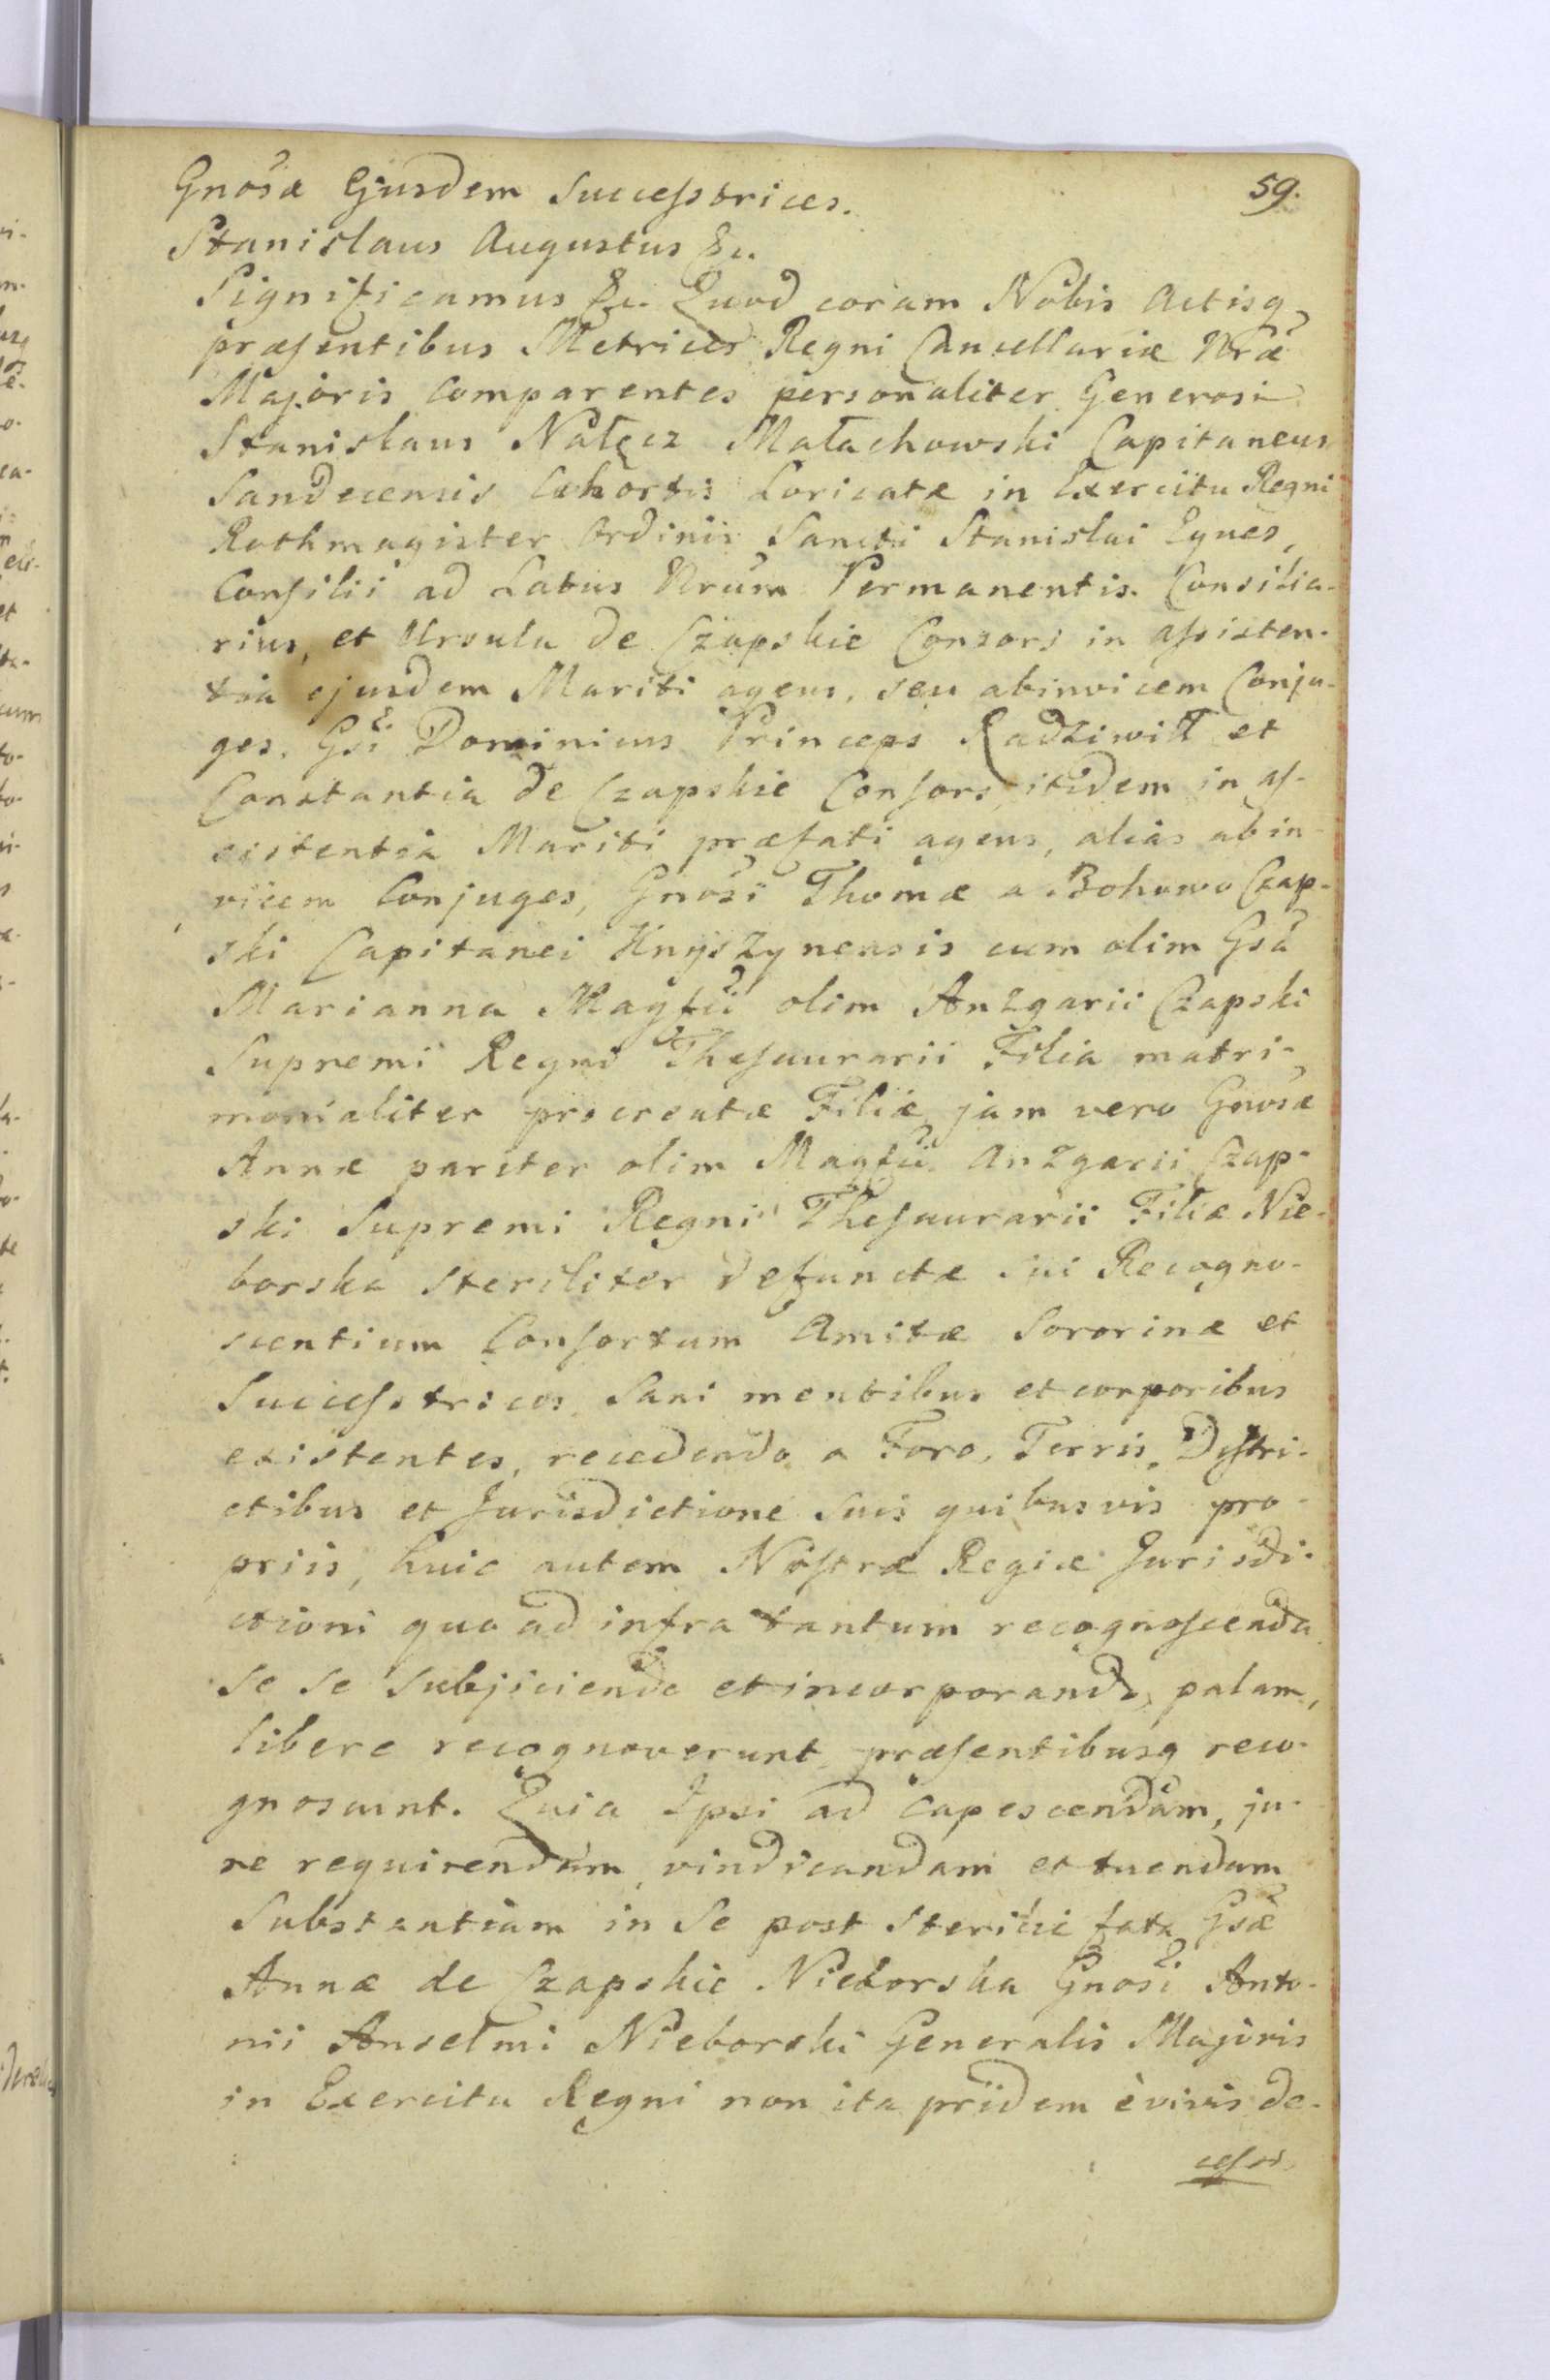 59.
Gnosæ Ejusdem Successtrices.
Stanislaus Augustus &c.
Significamus &c. Quod coram Nobis Actisq
præsentibus Metrices Regni Cancellariæ Nræ
Majoris comparentes personaliter Generosi
Stanislaus Nałęcz Małachowski Capitaneus
Sandecensis Cohortis Loricatæ in Exercitu Regni
Rothmagister Ordinis Sancti Stanislai Eques,
Consilii ad Latus Nrum Permanentis Consilia-
rius, et Ursula de Czapskie Consors in assisten-
tia ejusdem Mariti agens, seu abinvicem Conju-
ges, Gsi Dominicus Princeps Radziwiłł et
Constantia de Czapskie Consors itidem in as-
sistentia Mariti præfati agens, alias abin-
vicem Conjuges, Gnosi Thomæ a Bohowo Czap-
ski Capitanei Knyszynensis cum olim Gsa
Marianna Magfci olim Anzgarii Czapski
Supremi Regni Thesaurarii Filia matri-
monialiter procreatæ Filiæ, jam vero Gnosæ
Annæ pariter olim Magfci Anzgarii Czap-
ski Supremi Regni Thesaurarii Filiæ Nie-
borska steriliter defunctæ sui Recogno-
scentium Consortum Amitæ Sororinæ et
Successtrices, Sani mentibus et corporibus
existentes, recedendo a Foro, Terris, Distri-
ctibus et Jurisdictione suis quibusvis pro-
priis, huic autem Nostræ Regiæ Jurisdi-
ctioni quo ad infra tantum recognoscenda
se se subjiciendo et incorporando, palam,
libere recognoverunt præsentibusq reco-
gnoscunt. Quia Ipsi ad capescendam, ju-
re requirendam, vindicandam et tuendam
Substantiam in Se post sterilia fata Gsæ
Annæ de Czapskie Nieborska Gnosi Anto-
nii Anselmi Nieborski Generalis Majoris
in Exercitu Regni non ita pridem è vivis de-